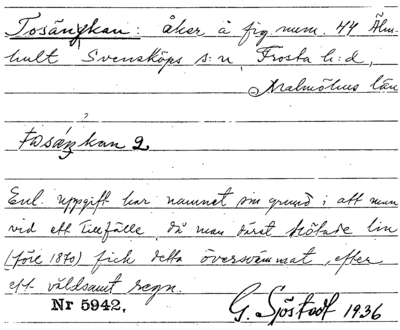 Tosängkan: åker å fig num. 44 Älm-
hult Svensköps s:n, Frosta h:d,
Malmöhus län
tosáŋkan 2
Enl. uppgift har namnet som grund i att man
vid ett tillfälle, då man därst stötade lin
(före 1870) fick detta översvämmat, efter
ett våldsamt regn.
Nr 5942.
G. Sjöstedt 1936